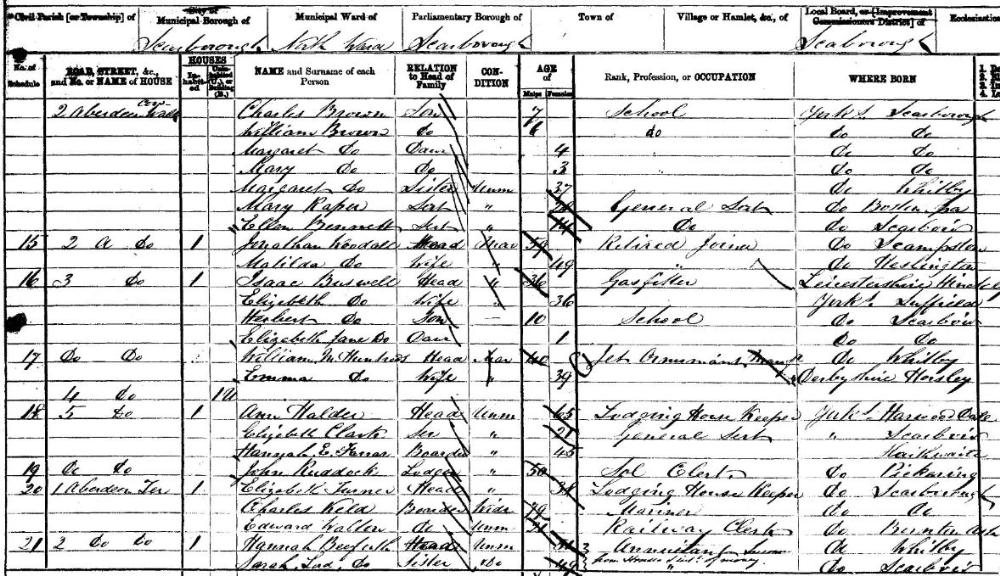 Civil Parish [or Township] of City or Municipal Borough of Municipal Ward of Parliamentary Borough of Town of Village or Hamlet, &c., of Local Board, or [Improvement Commissioners District] of Ecclesiastic
Scarborough North Ward Scarborough Scarborough
No. of Schedule ROAD, STREET, &c., and No. or NAME of HOUSE HOUSES Inhabited Uninhabited (U.), or Building (B.) NAME and Surname of each Person RELATION to Head of Family CONDITION AGE of Males Females Rank, Profession, or OCCUPATION WHERE BORN
2 Aberdeen Walk Charles Brown Son 7 School Yorks Scarborough
William Brown do 6 do do do
Margaret Do Daur 4 do do
Mary Do Do 3 do do
Margaret do Sister Unm 37 do Whitby
Mary Raper Sert " General Sert do Boston Spa
Ellen Bennett Sert " 14 Do do Scarbro
15 2 a do 1 Jonathan Woodall Head Mar 59 Retired Joiner do Scampston
Matilda Do Wife " 49 do Heslington
16 3 do 1 Isaac Buswell Head " 36 Gasfitter Leicestershire
Elizabeth Do Wife " 36 Yorks Suffield
Herbert Do Son 10 School do Scarbro
Elizabeth Jane Do Daur 1 Do do
17 Do Do 1 William Head Mar 40 Jet Do Whitby
Emma do Wife " 39 Derbyshire Horsley
4 do 1U
18 5 do 1 Ann Halder Head Unm 65 Lodging House Keeper Yorks Harwood Dale
Elizabeth Clark Ser " 21 General Sert " Scarbro
Hannah E. Farrar Boarder " 45
19 do do John Ruddock Lodger " 50 Sol Clerk do Pickering
20 1 Aberdeen Ter 1 Elizabeth Turner Head " 38 Lodging House Keeper do Scarborough
Charles Keld Boarder Widr 79 Mariner Do do
Edward do Unm Railway Clerk Do
21 2 do do 1 Hannah Head Unm Annuitant do Whitby
Sarah do Sister do 49 from Houses money do Scarbro